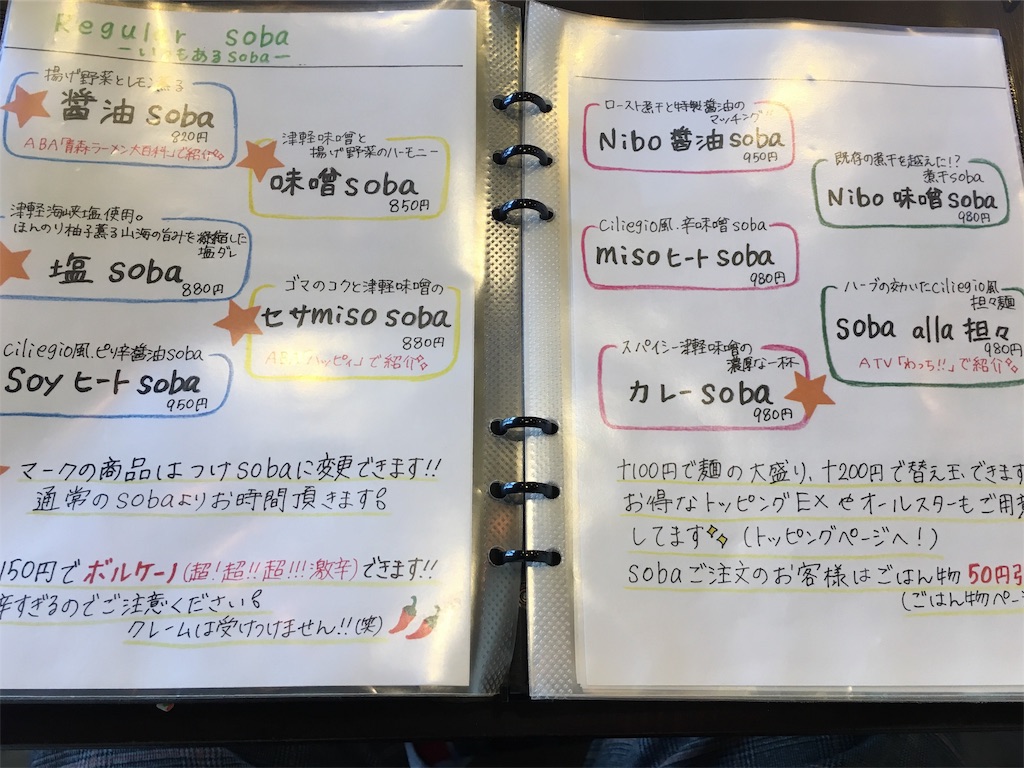 Regular soba
ーいつもあるsobaー
揚げ野菜とレモン薫る
醤油soba
820円
ABA「青森ラーメン大百科」で紹介
津軽味噌と
揚げ野菜のハーモニー
味噌soba
850円
津軽海峡塩使用。
ほんのり柚子薫る山海の旨みを凝縮した
塩ダレ
塩soba
880円
ゴマのコクと津軽味噌の
セサmiso soba
880円
ABA「ハッピィ」で紹介
Ciliegio風.ピリ辛醤油soba
Soyヒートsoba
950円
マークの商品はつけsobaに変更できます!!
通常のsobaよりお時間頂きます。
150円でボルケーノ(超!超!!超!!!激辛)できます!!
辛すぎるのでご注意ください。
クレームは受けつけません!!(笑)
ロースト煮干と特製醤油の
マッチング
Nibo醤油soba
950円
既存の煮干を越えた!?
煮干soba
Nibo味噌soba
980円
Ciliegio風.辛味噌soba
misoヒートsoba
980円
ハーブの効いたCiliegio風
担々麺
soba alla 担々
980円
ATV「わっち!!」で紹介
スパイシー津軽味噌の
濃厚な一杯
カレーsoba
980円
+100円で麺の大盛り、+200円で替え玉できます
お得なトッピングEXやオールスターもご用意
してます(トッピングページへ!)
sobaご注文のお客様はごはん物50円引
(ごはん物ペー